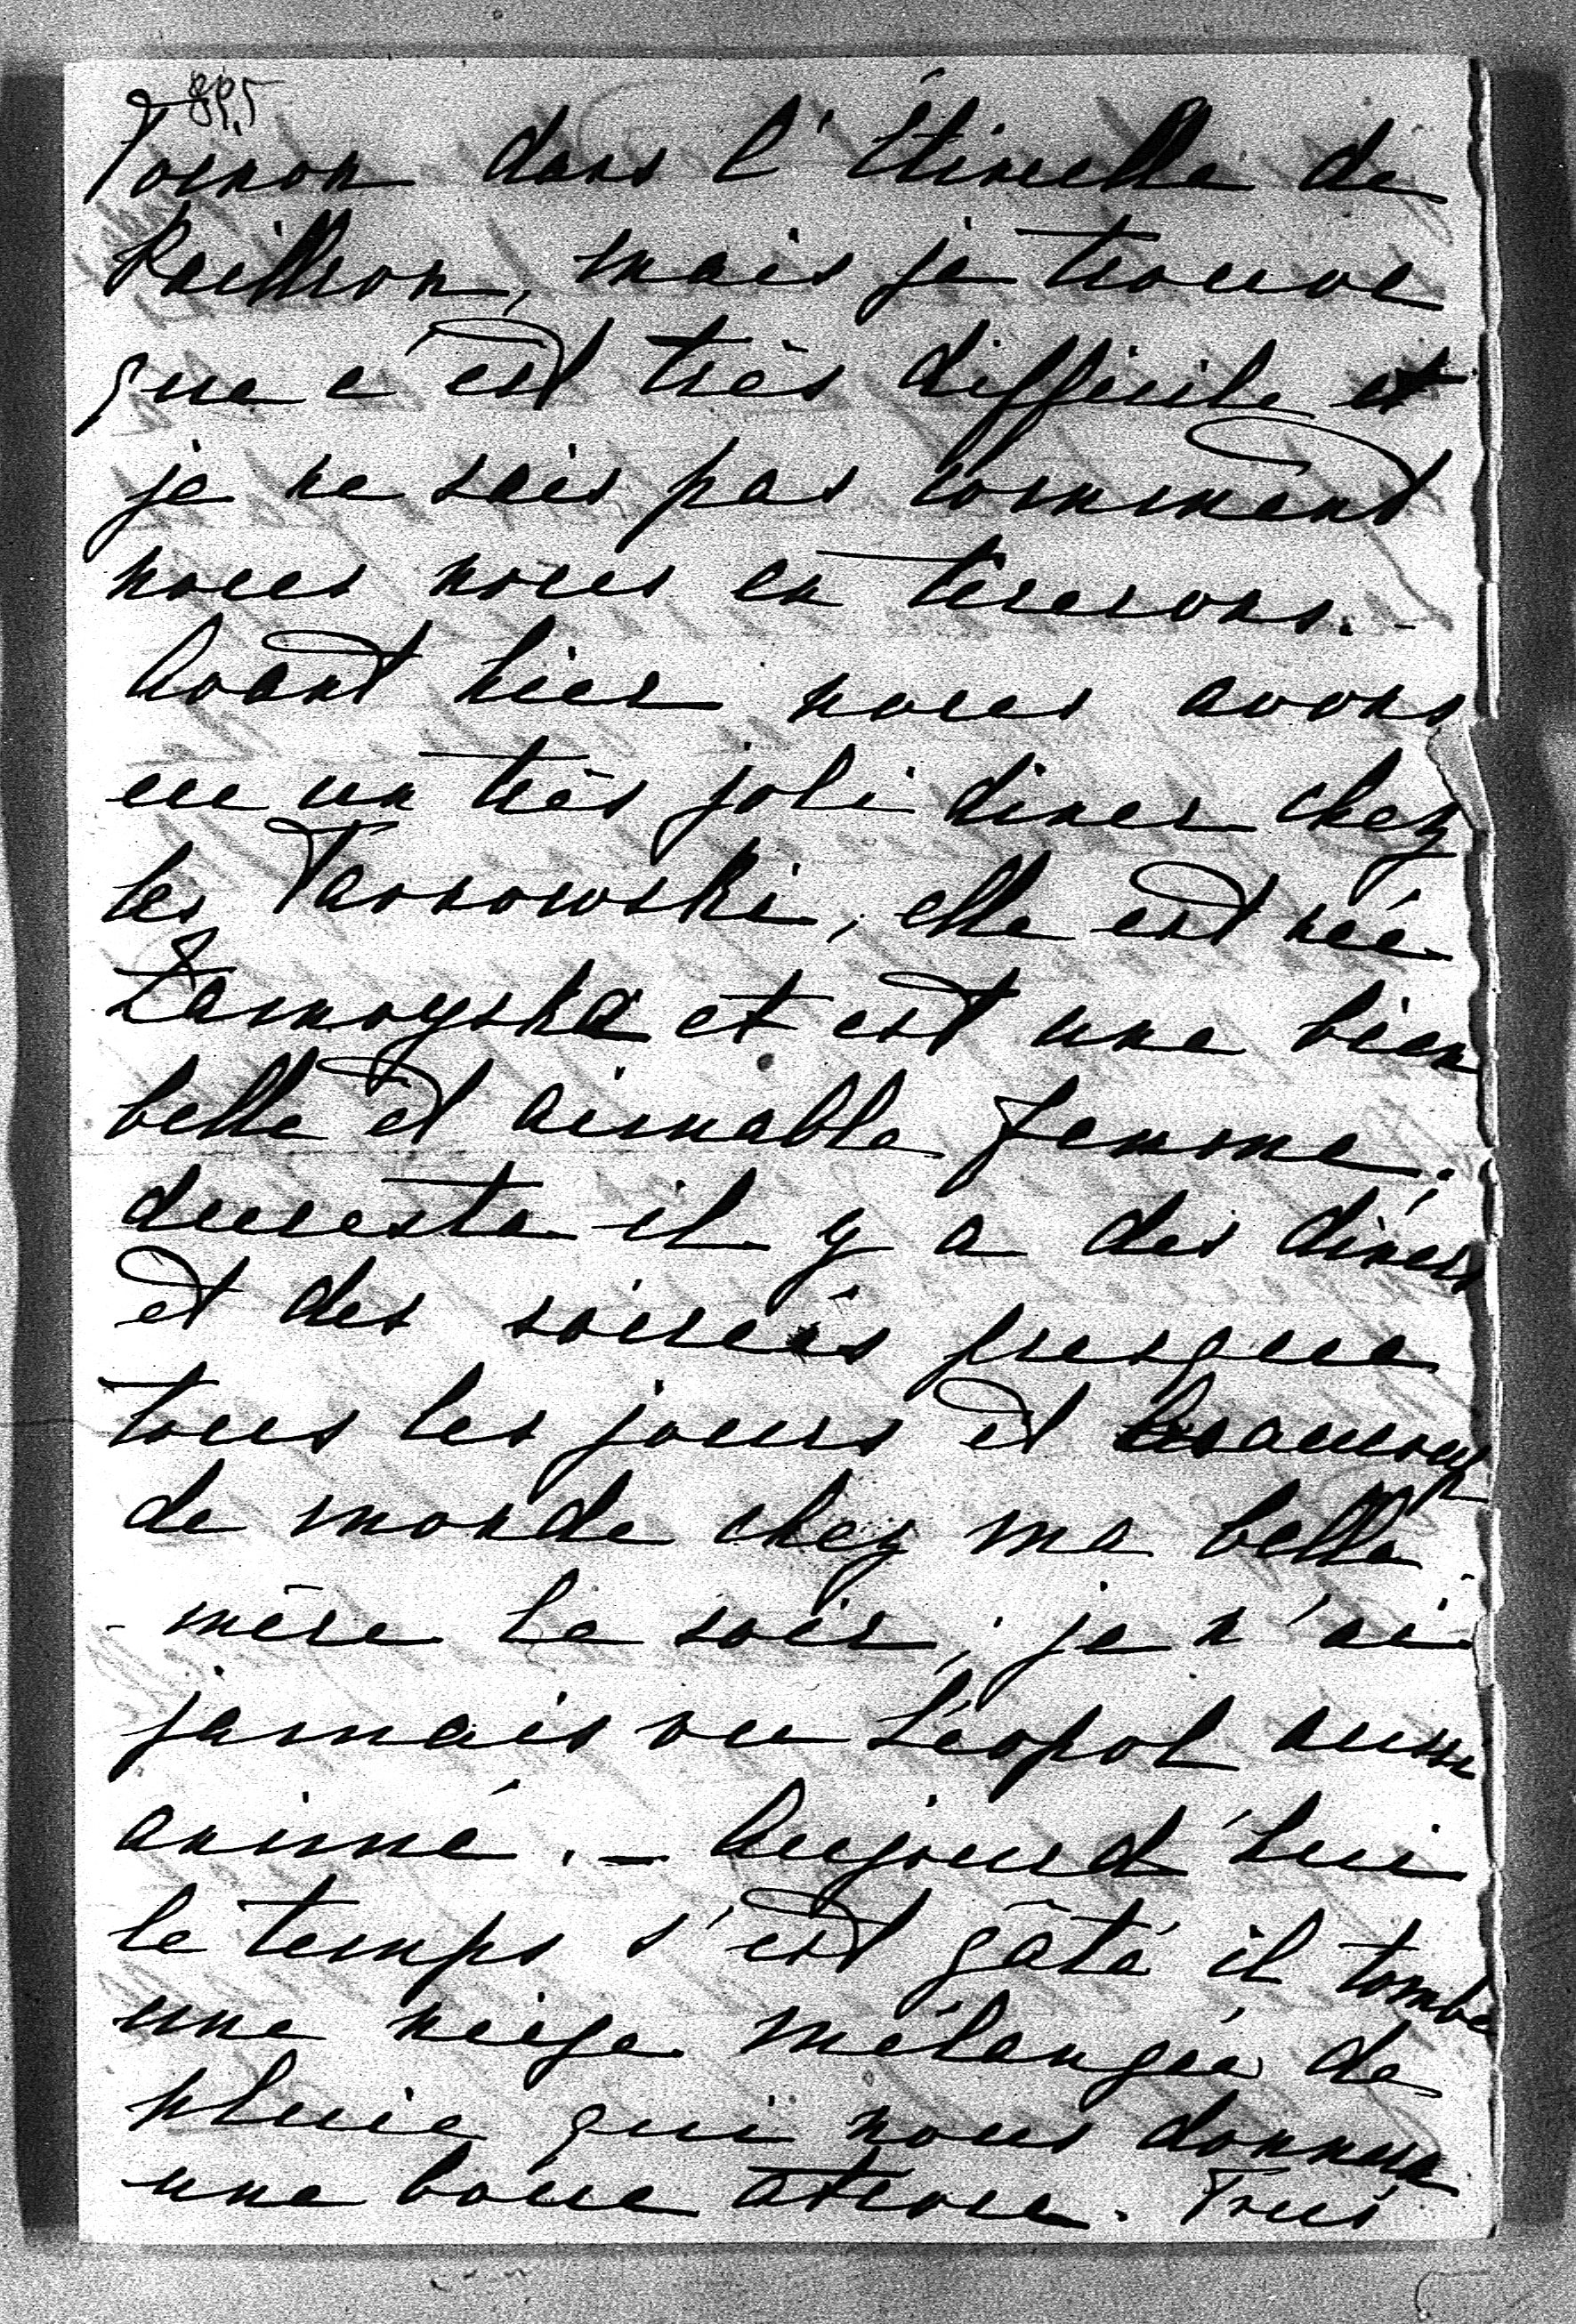 895
Toinon dans l'Étincelle de
Pailleron, mais je trouve
que c'est très difficile et
je ne sais pas comment
nous nous en tirerons. -
Avant hier nous avons
eu un très joli diner chez
les Tarnowski, elle est née
Zamoyska et est une bien
belle et aimable femme.
dureste il y a des diners
et des soirées presque
tous les jours et beaucoup
de monde chez ma belle
- mère le soir, je n'ai
jamais vu Léopol aussi
animé. - Aujourd'hui
le temps s'est gâté il tombe
une neige mélangée de
pluie qui nous donnera
une boue atroce. Tous